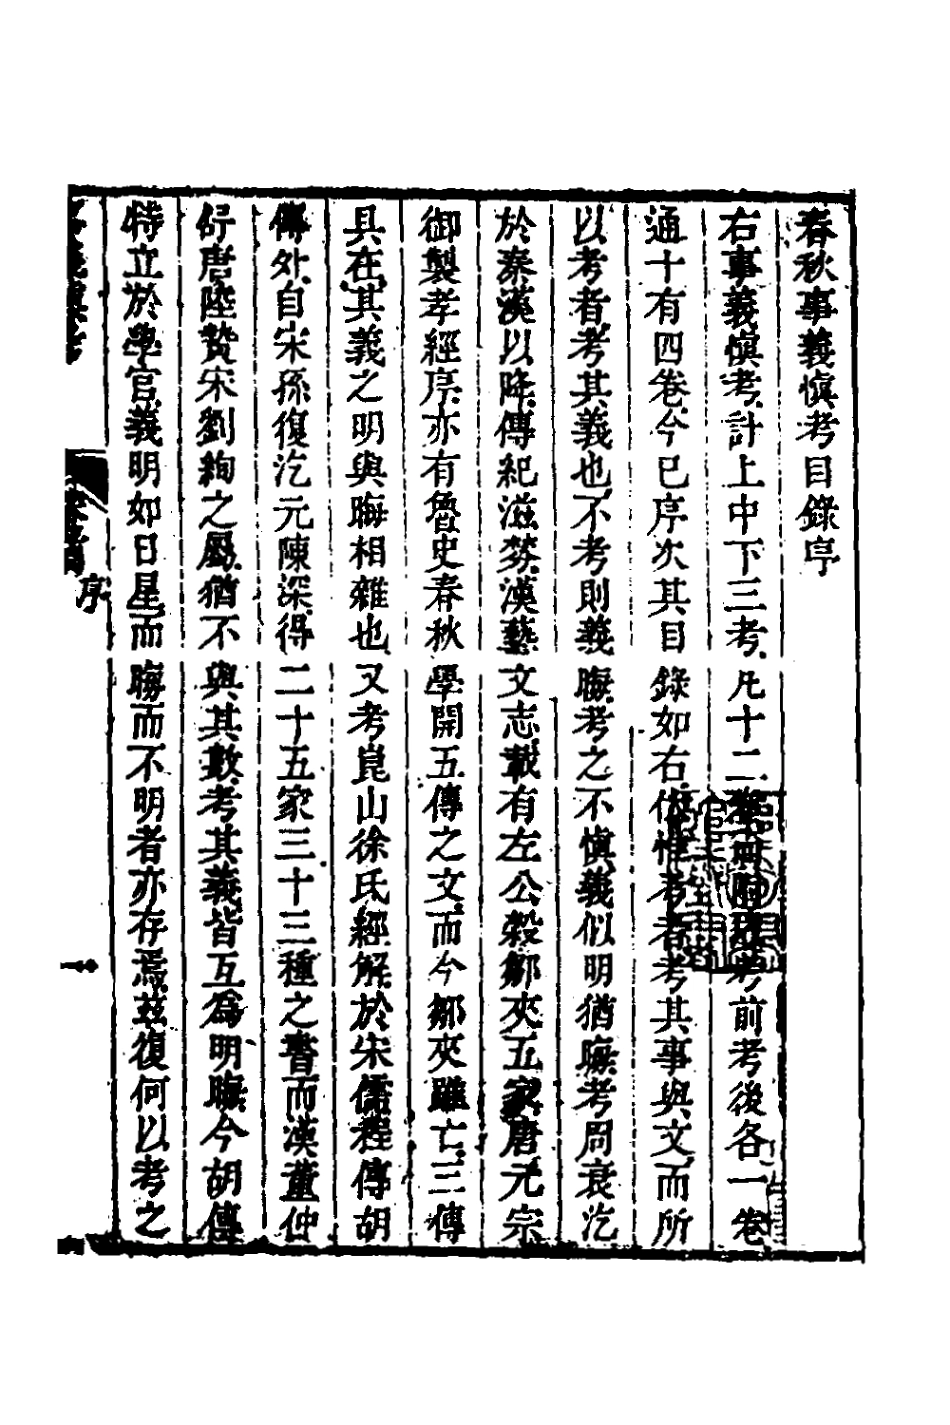 春秋事義慎考目錄序
右事義慎考計上中下三考凡十二卷前考後各一卷
通十有四卷今已序次其目錄如右伏惟考者考其事與文而所
以考者考其義也不考則義晦考之不慎義似明猶晦考周衰汔
於秦漢以降傳紀滋棼漢藝文志載有左公穀鄒夾五家唐元宗
御製孝經序亦有魯史春秋學開五傳之文而今鄒夾雖亡三傳
具在其義之明與晦相雜也又考崑山徐氏經解於宋儒程傳胡
傳外自宋孫復汔元陳深得二十五家三十三種之書而漢董仲
舒唐陸贄宋劉絢之屬猶不與其數考其義皆互爲明晦今胡傳
特立於學官義明如日星而晦而不明者亦存焉茲復何以考之
序